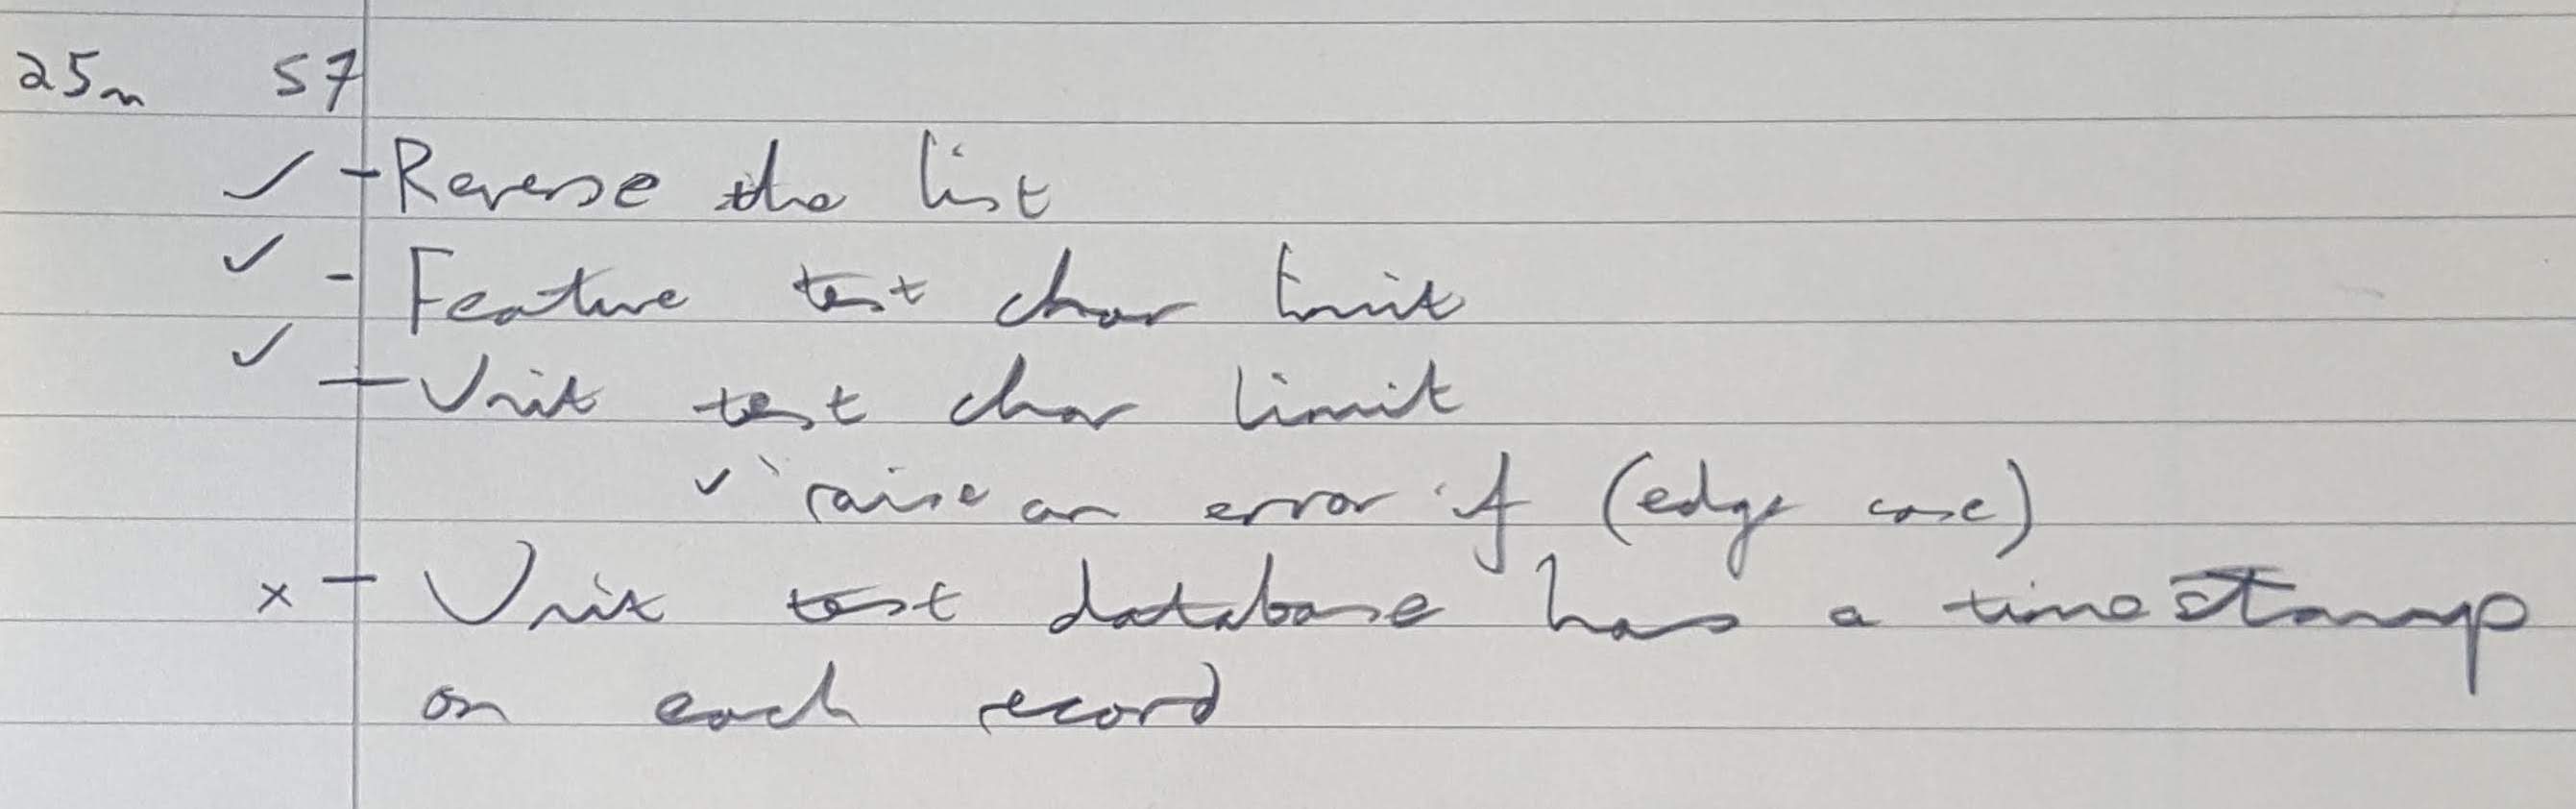 25m 57
✓ - Reverse the list
✓ - Feature test char limit
✓ - Unit test char limit
✓ raise an error if (edge case)
x - Unit test database has a timestamp
on each record